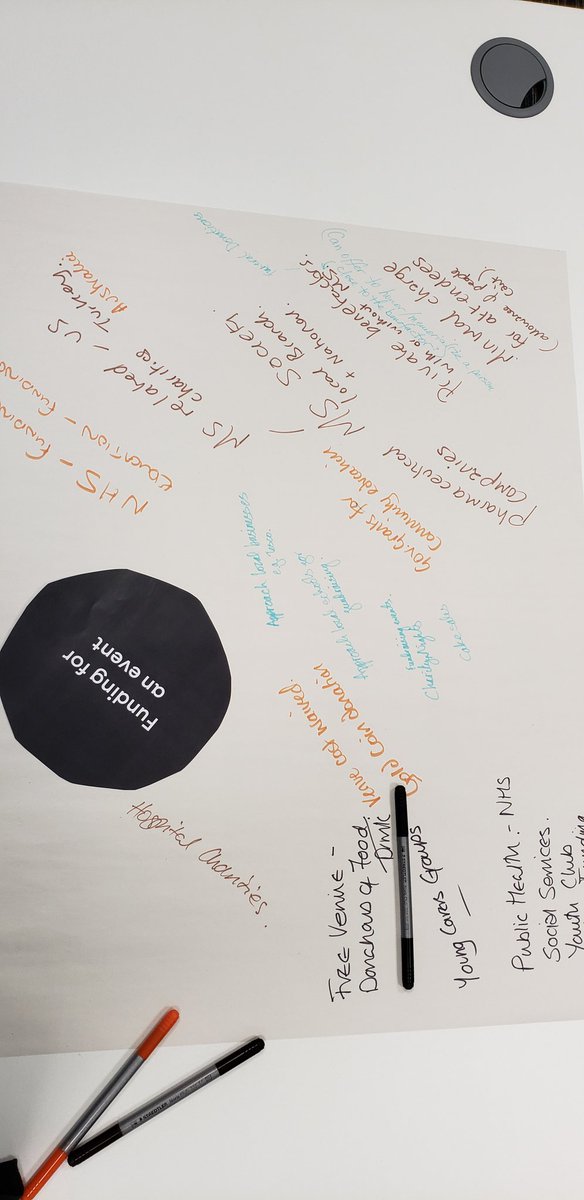 Funding for
an event
NHS - Funding
EDUCATION - Funding
MS related - US
charities Turkey
Australia
MS SOCIETY
Local Branch
+ National
Private benefactors
with or without
Familial Donations
(can offer to honor/memorialize a person
Minimal charge
for attendees
cant people
pharmaceutical
companies
gov. grants for
community education
Approach local businesses
eg Tesco.
Approach local schools
fundraising
Fundraising events.
Charity Nights
Cake sales
Venue cost waived.
Gold Coin donation
FREE VENUE -
Donations of Food.
Drink
Young Carers Groups
Public Health - NHS
Social Services.
Youth Club
Funding
Hospital Charities.